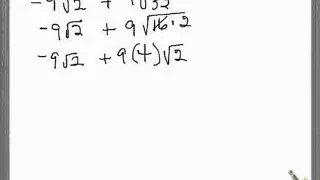 -9√2 + 9√32
-9√2 + 9√16·2
-9√2 + 9(4)√2